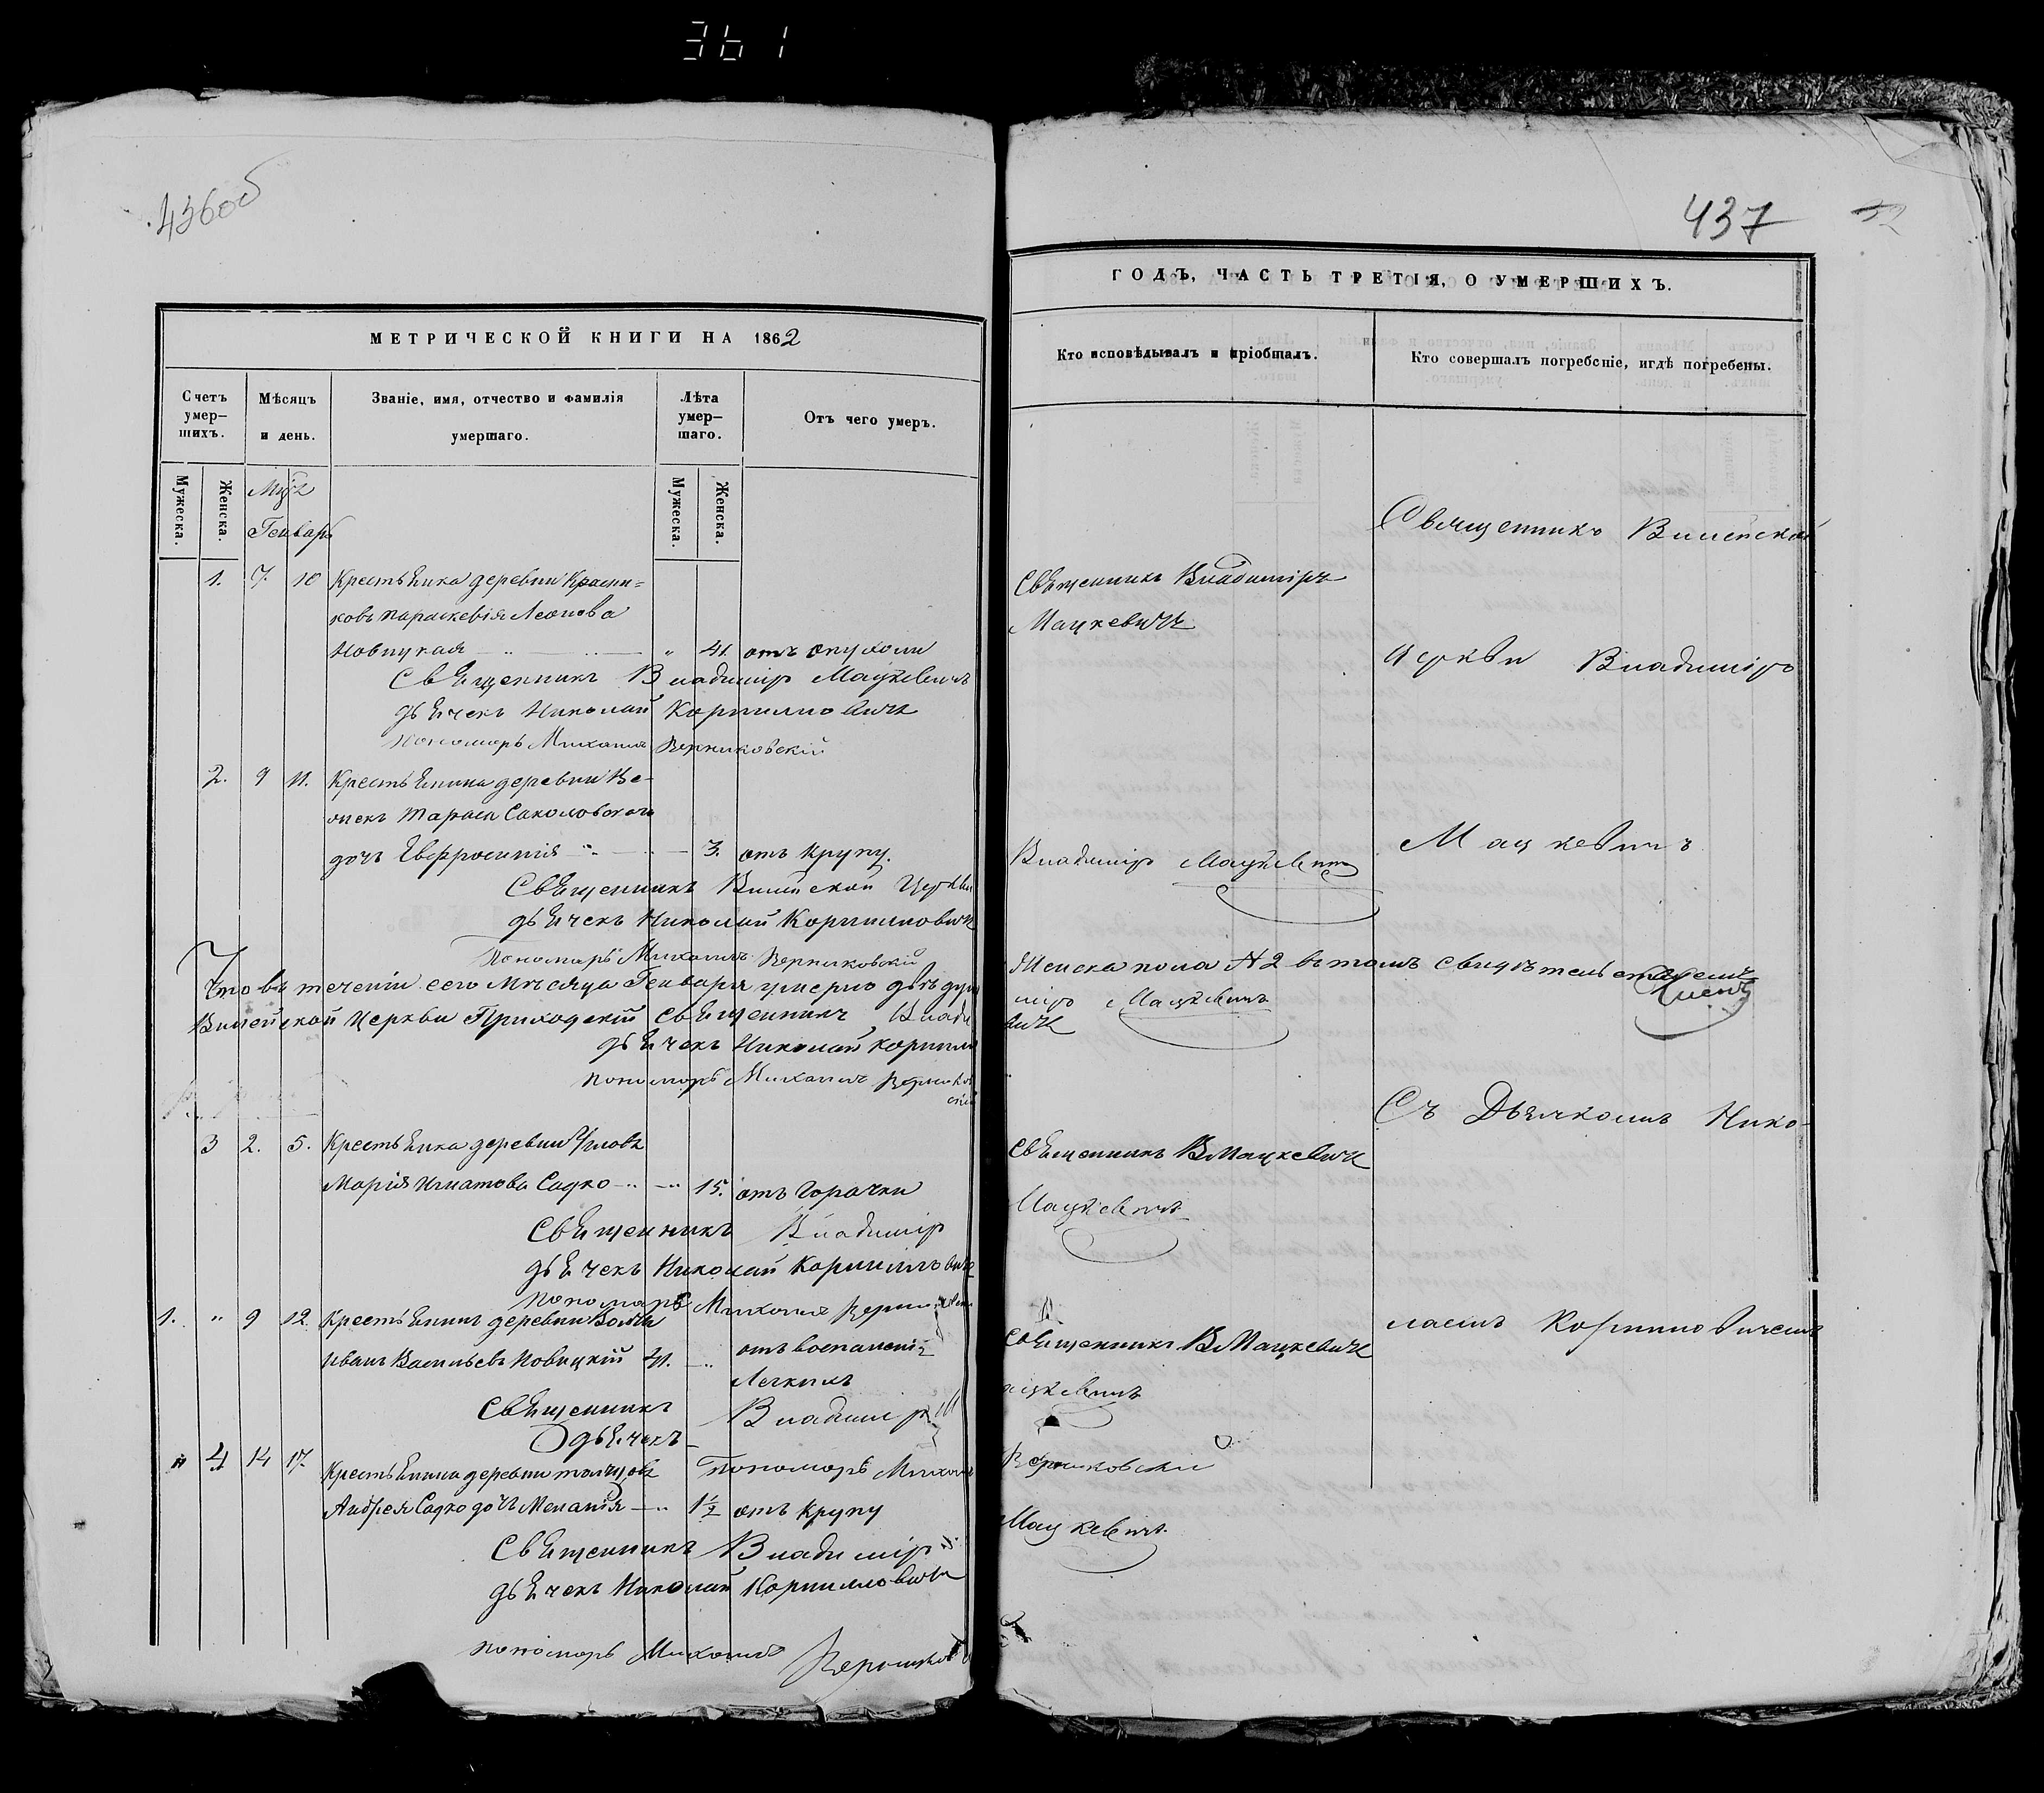 361
436об
МЕТРИЧЕСКОЙ КНИГИ НА 1862
Счетъ умер-шихъ.
Мѣсяцъ и день.
Званіе, имя, отчество и фамилія умершаго.
Лѣта умер-шаго.
Отъ чего умеръ.
Мужеска.
Женска.
Мужеска.
Женска.
Генварь
1. 7. 10 Крестьянка деревни
ковъ Параскевія Леонова
Новицкая " 41. отъ опухоли
Священникъ Владиміръ Мацкевичъ
дьячекъ Николай Корнилловичъ
Пономаръ Михаилъ Верниковскій
2. 9 11. Крестьянина деревни
Тараса Соколовскаго
дочь Евфросинія 3. отъ крупу.
Священникъ Вилейской Церкви
дьячекъ Николай Корнилловичъ
Пономарь Михаилъ Верниковскій
Что въ теченіи сего Мѣсяца Генваря умерло двѣ душ
Вилейской Церкви Приходскій священникъ Влади
дьячекъ Николай Корнилло
пономарь Михаилъ Верников
скій
3 2. 5. Крестьянка деревни
Марія Игнатова Садко 15. отъ горачки
Священникъ Владиміръ
дьячекъ Николай Корнилловичъ
Пономарь Михаилъ
1. " 9 12. Крестьянинъ деревни
Иванъ Васильевъ Новицкій 41. отъ воспаленія
Легкихъ
Священникъ Владиміръ
дьячекъ
Пономарь Михаилъ
" 4 14 17. Крестьянина деревни
Андрея Садко дочь Меланія 1½ отъ крупу
Священникъ Владиміръ
дьячекъ Николай Корнилловичъ
пономарь Михаилъ
437
ГОДЪ, ЧАСТЬ ТРЕТІЯ, О УМЕРШИХЪ.
Кто исповѣдывалъ и пріобщалъ.
Кто совершалъ погребеніе, и гдѣ погребены.
Священникъ Вилейской
Священникъ Владиміръ
Мацкевичъ
Церкви Владиміръ
Мацкевичъ
Владиміръ Мацкевичъ
Женска пола № 2 въ томъ свидѣтельствуемъ
міръ Мацкевичъ
вичъ
Съ Дьячкомъ Нико-
Священникъ В Мацкевичъ
Мацкевичъ
лаемъ Корнилловичемъ
Священникъ В Мацкевичъ
ацкевичъ
Верниковскій
Мацкевичъ.